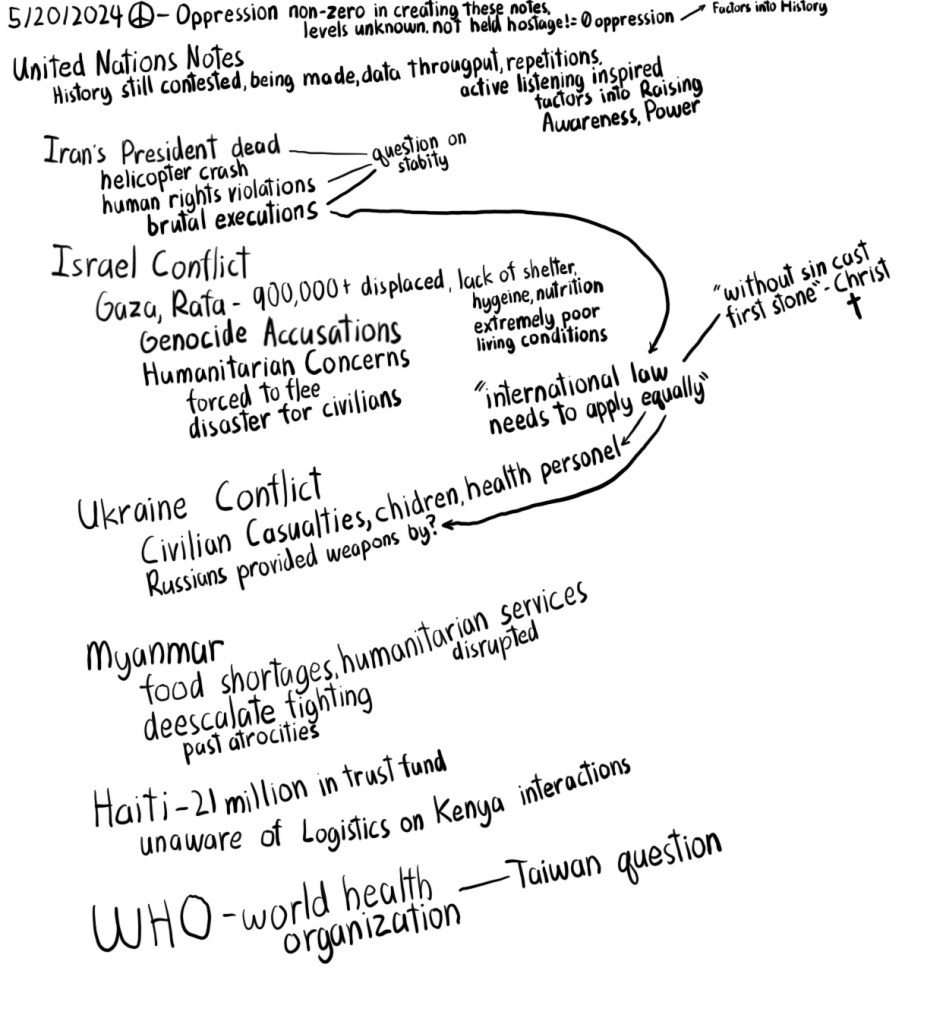 5/20/2024 ☮ - Oppression non-zero in creating these notes,
levels unknown. not held hostage != 0 oppression
Factors into History
United Nations Notes
History still contested, being made, data througput, repetitions,
active listening inspired
factors into Raising
Awareness, Power
Iran's President dead
question on
stabity
helicopter crash
human rights violations
brutal executions
Israel Conflict
Gaza, Rafa - 900,000+ displaced, lack of shelter,
hygeine, nutrition
extremely poor
living conditions
Genocide Accusations
Humanitarian Concerns
forced to flee
disaster for civilians
"without sin cast
first stone" - Christ
✝
"international law
needs to apply equally"
Ukraine Conflict
Civilian Casualties, chidren, health personel
Russians provided weapons by?
Myanmar
food shortages, humanitarian services
disrupted
deescalate fighting
past atrocities
Haiti - 21 million in trust fund
unaware of Logistics on Kenya interactions
WHO - world health
organization
Taiwan question